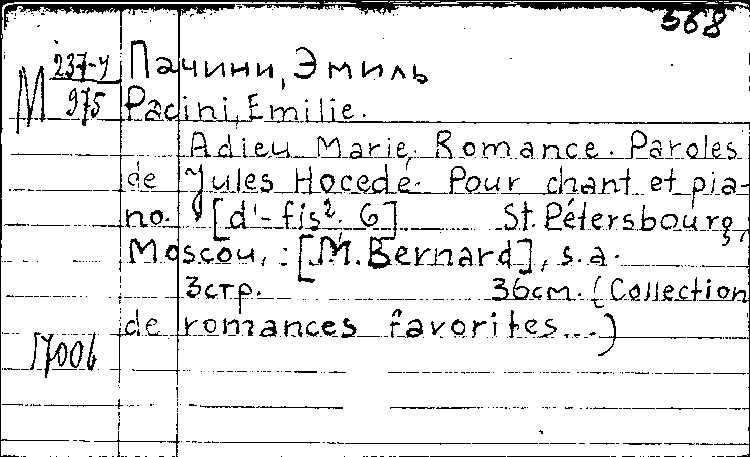 568
М 237-У
975
Пачини, Эмиль
Pacini, Emilie.
Adieu Marie. Romance. Paroles
de Jules Hocedé. Pour chant et pia-
no. [d'-fis². G] St. Pétersbourg,
Moscou, : [M. Bernard], s.a.
3стр. 36см. (Collection
de romances favorites...)
17006